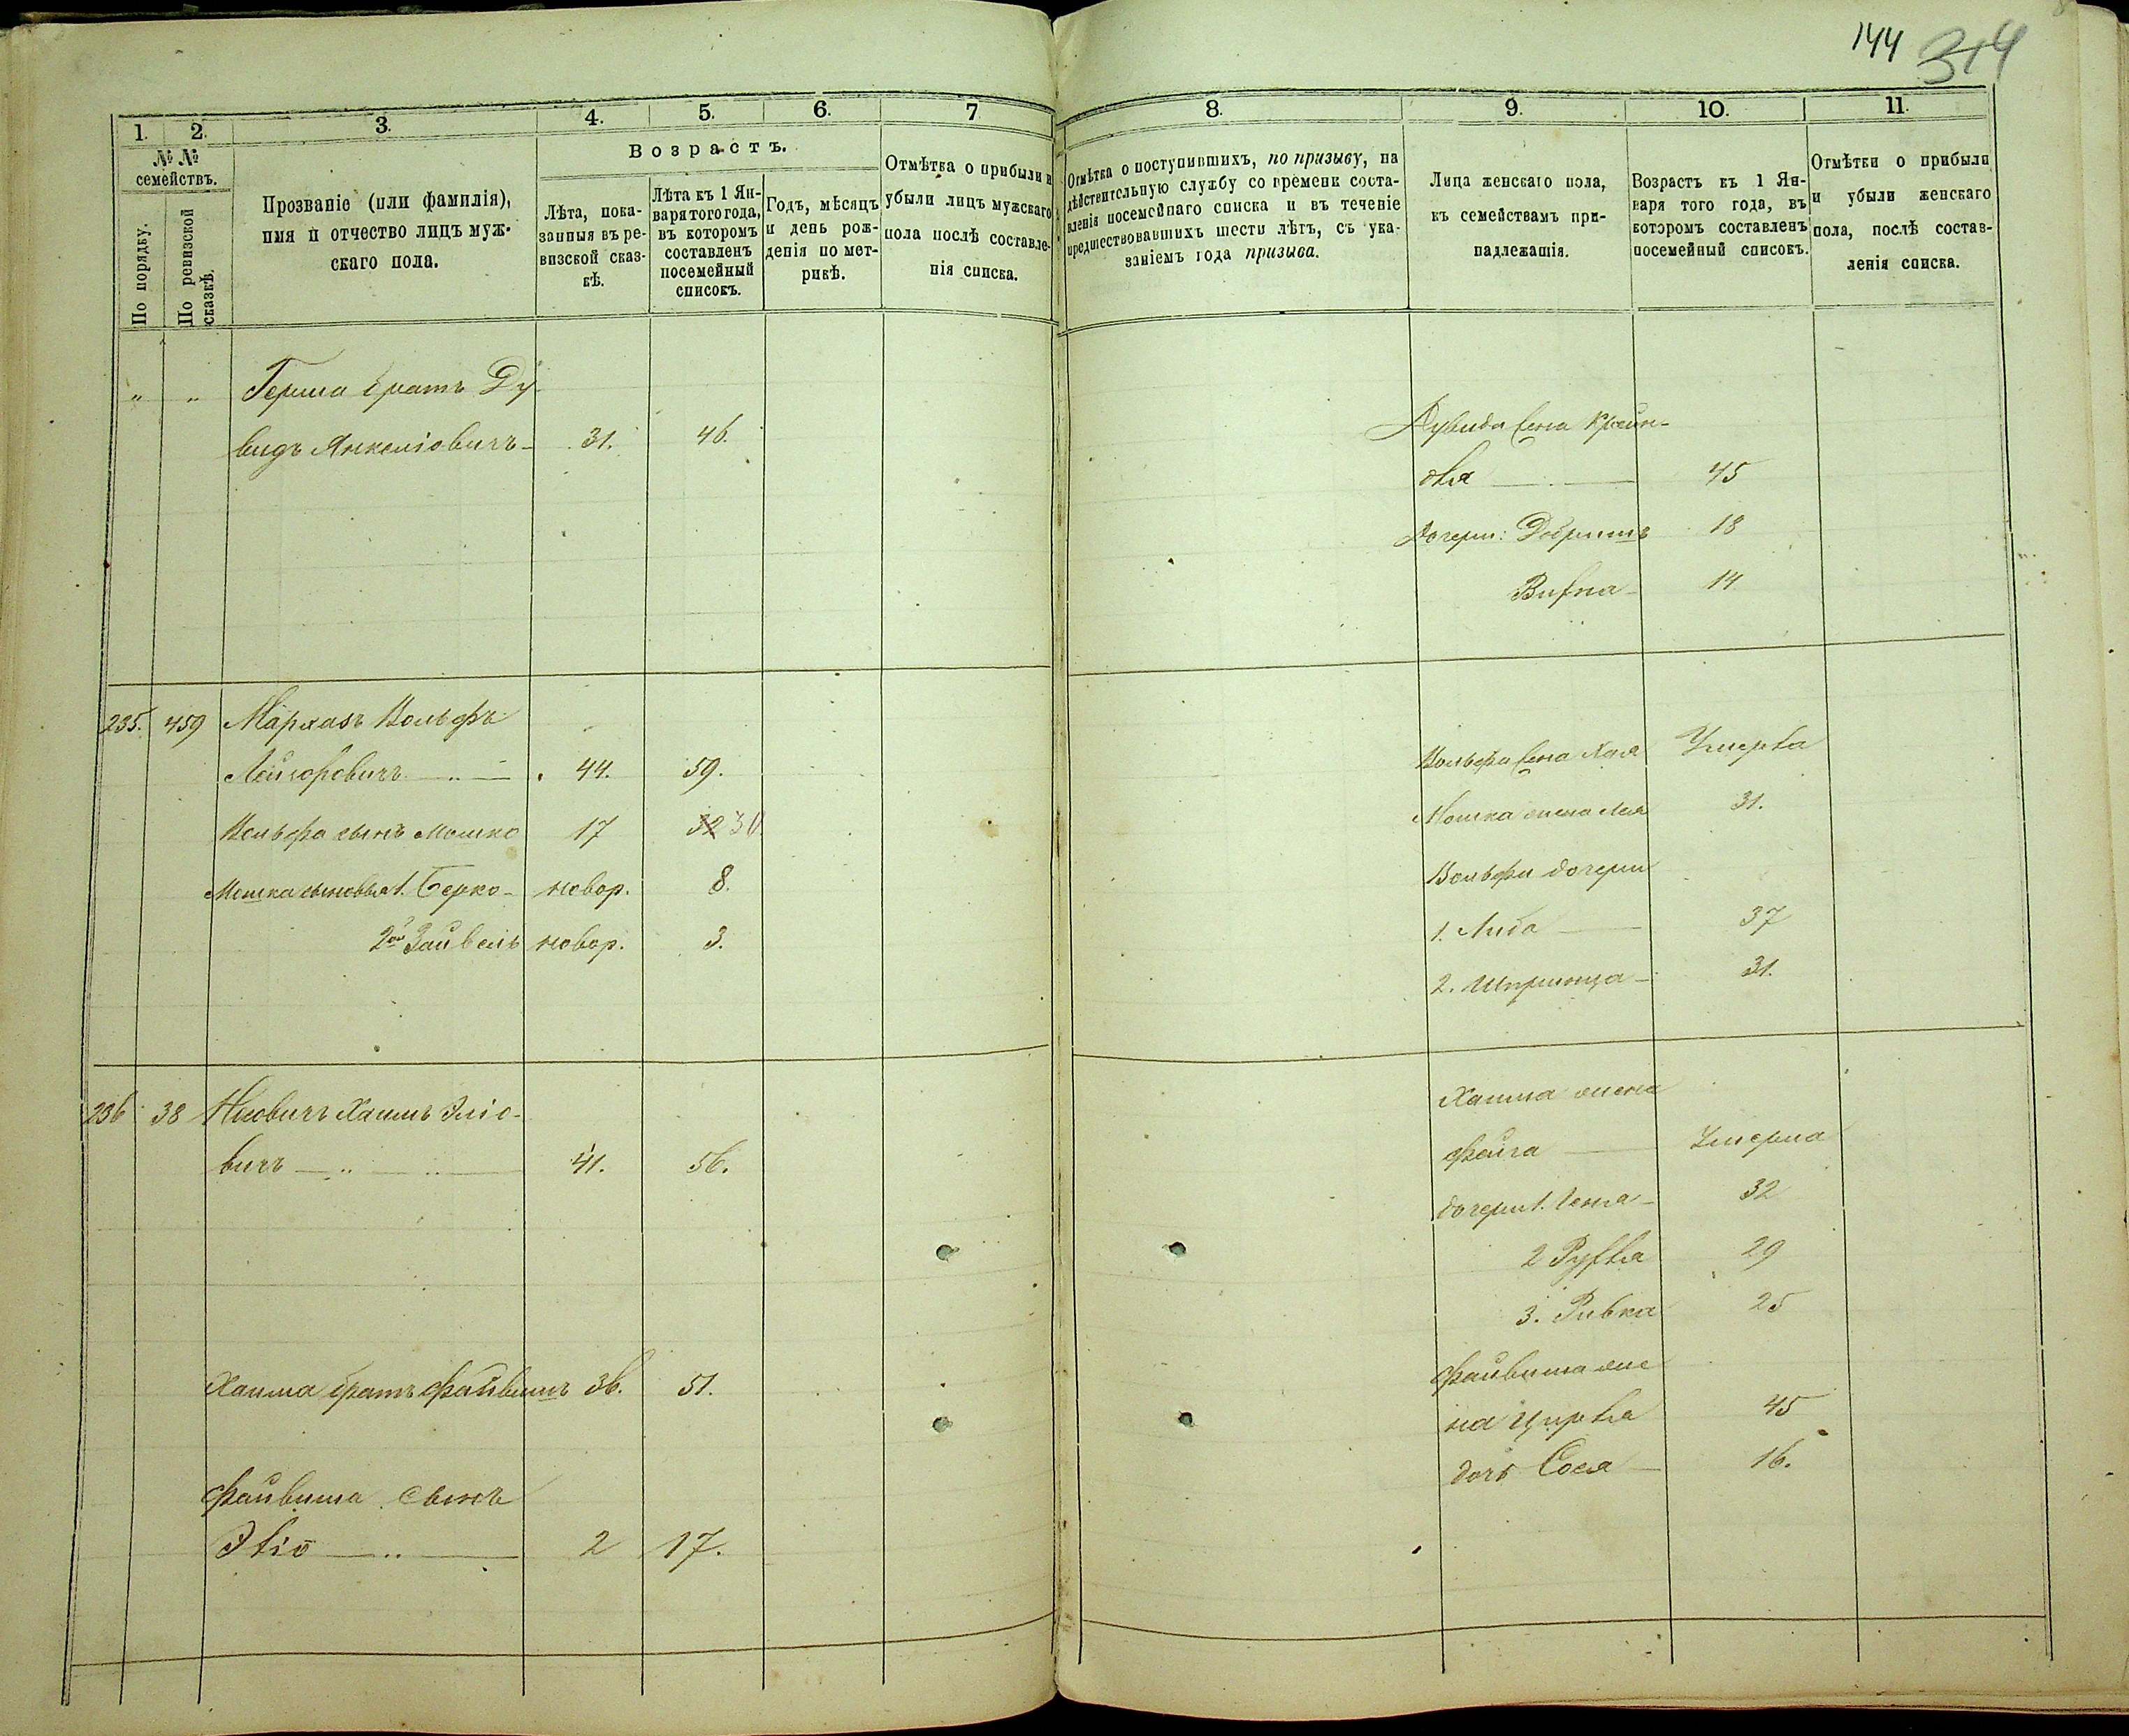 144 314
1. 2. 3. 4. 5. 6. 7
№ № семействъ.
По порядку.
По ревизской сказкѣ.
Прозваніе (или фамилія),
имя и отчество лицъ муж-
скаго пола.
Возрастъ.
Лѣта, пока-
занныя въ ре-
визской сказ-
кѣ.
Лѣта къ 1 Ян-
варя того года,
въ которомъ
составленъ
посемейный
списокъ.
Годъ, мѣсяцъ
и день рож-
денія по мет-
рикѣ.
Отмѣтка о прибыли и
убыли лицъ мужскаго
пола послѣ составле-
нія списка.
" " Герша братъ Ду-
видъ Янкеліовичъ 31. 46.
235. 459 Мархасъ Вольфъ
Лейзоровичъ 44. 59.
Вольфа сынъ Мошко 17 32 30.
Мошка сыновья 1. Берко новор. 8.
2й Зайвель новор. 3.
236 38 Хаимъ Эліо-
вичъ 41. 56.
Хаима братъ Файвишъ 36. 51.
Файвиша сынъ
Эліо 2 17.
8. 9. 10. 11.
Отмѣтка о поступившихъ, по призыву, на
дѣйствительную службу со времени соста-
вленія посемейнаго списка и въ теченіе
предшествовавшихъ шести лѣтъ, съ ука-
заніемъ года призыва.
Лица женскаго пола,
къ семействамъ при-
надлежащія.
Возрастъ къ 1 Ян-
варя того года, въ
которомъ составленъ
посемейный списокъ.
Отмѣтки о прибыли
и убыли женскаго
пола, послѣ состав-
ленія списка.
Дувида жена Крейн-
для 45
Дочери: Добришъ 18
14
Вольфа жена Хая Умерла
Мошка жена Лея 31.
Вольфа дочери
1. Либа 37
2. Шпринца 31.
Хаима жена
Файга Умерла
дочери 1. 32
2 29
3. Ривка 25
Файвиша же
на Цирля 45
дочь Сося 16.